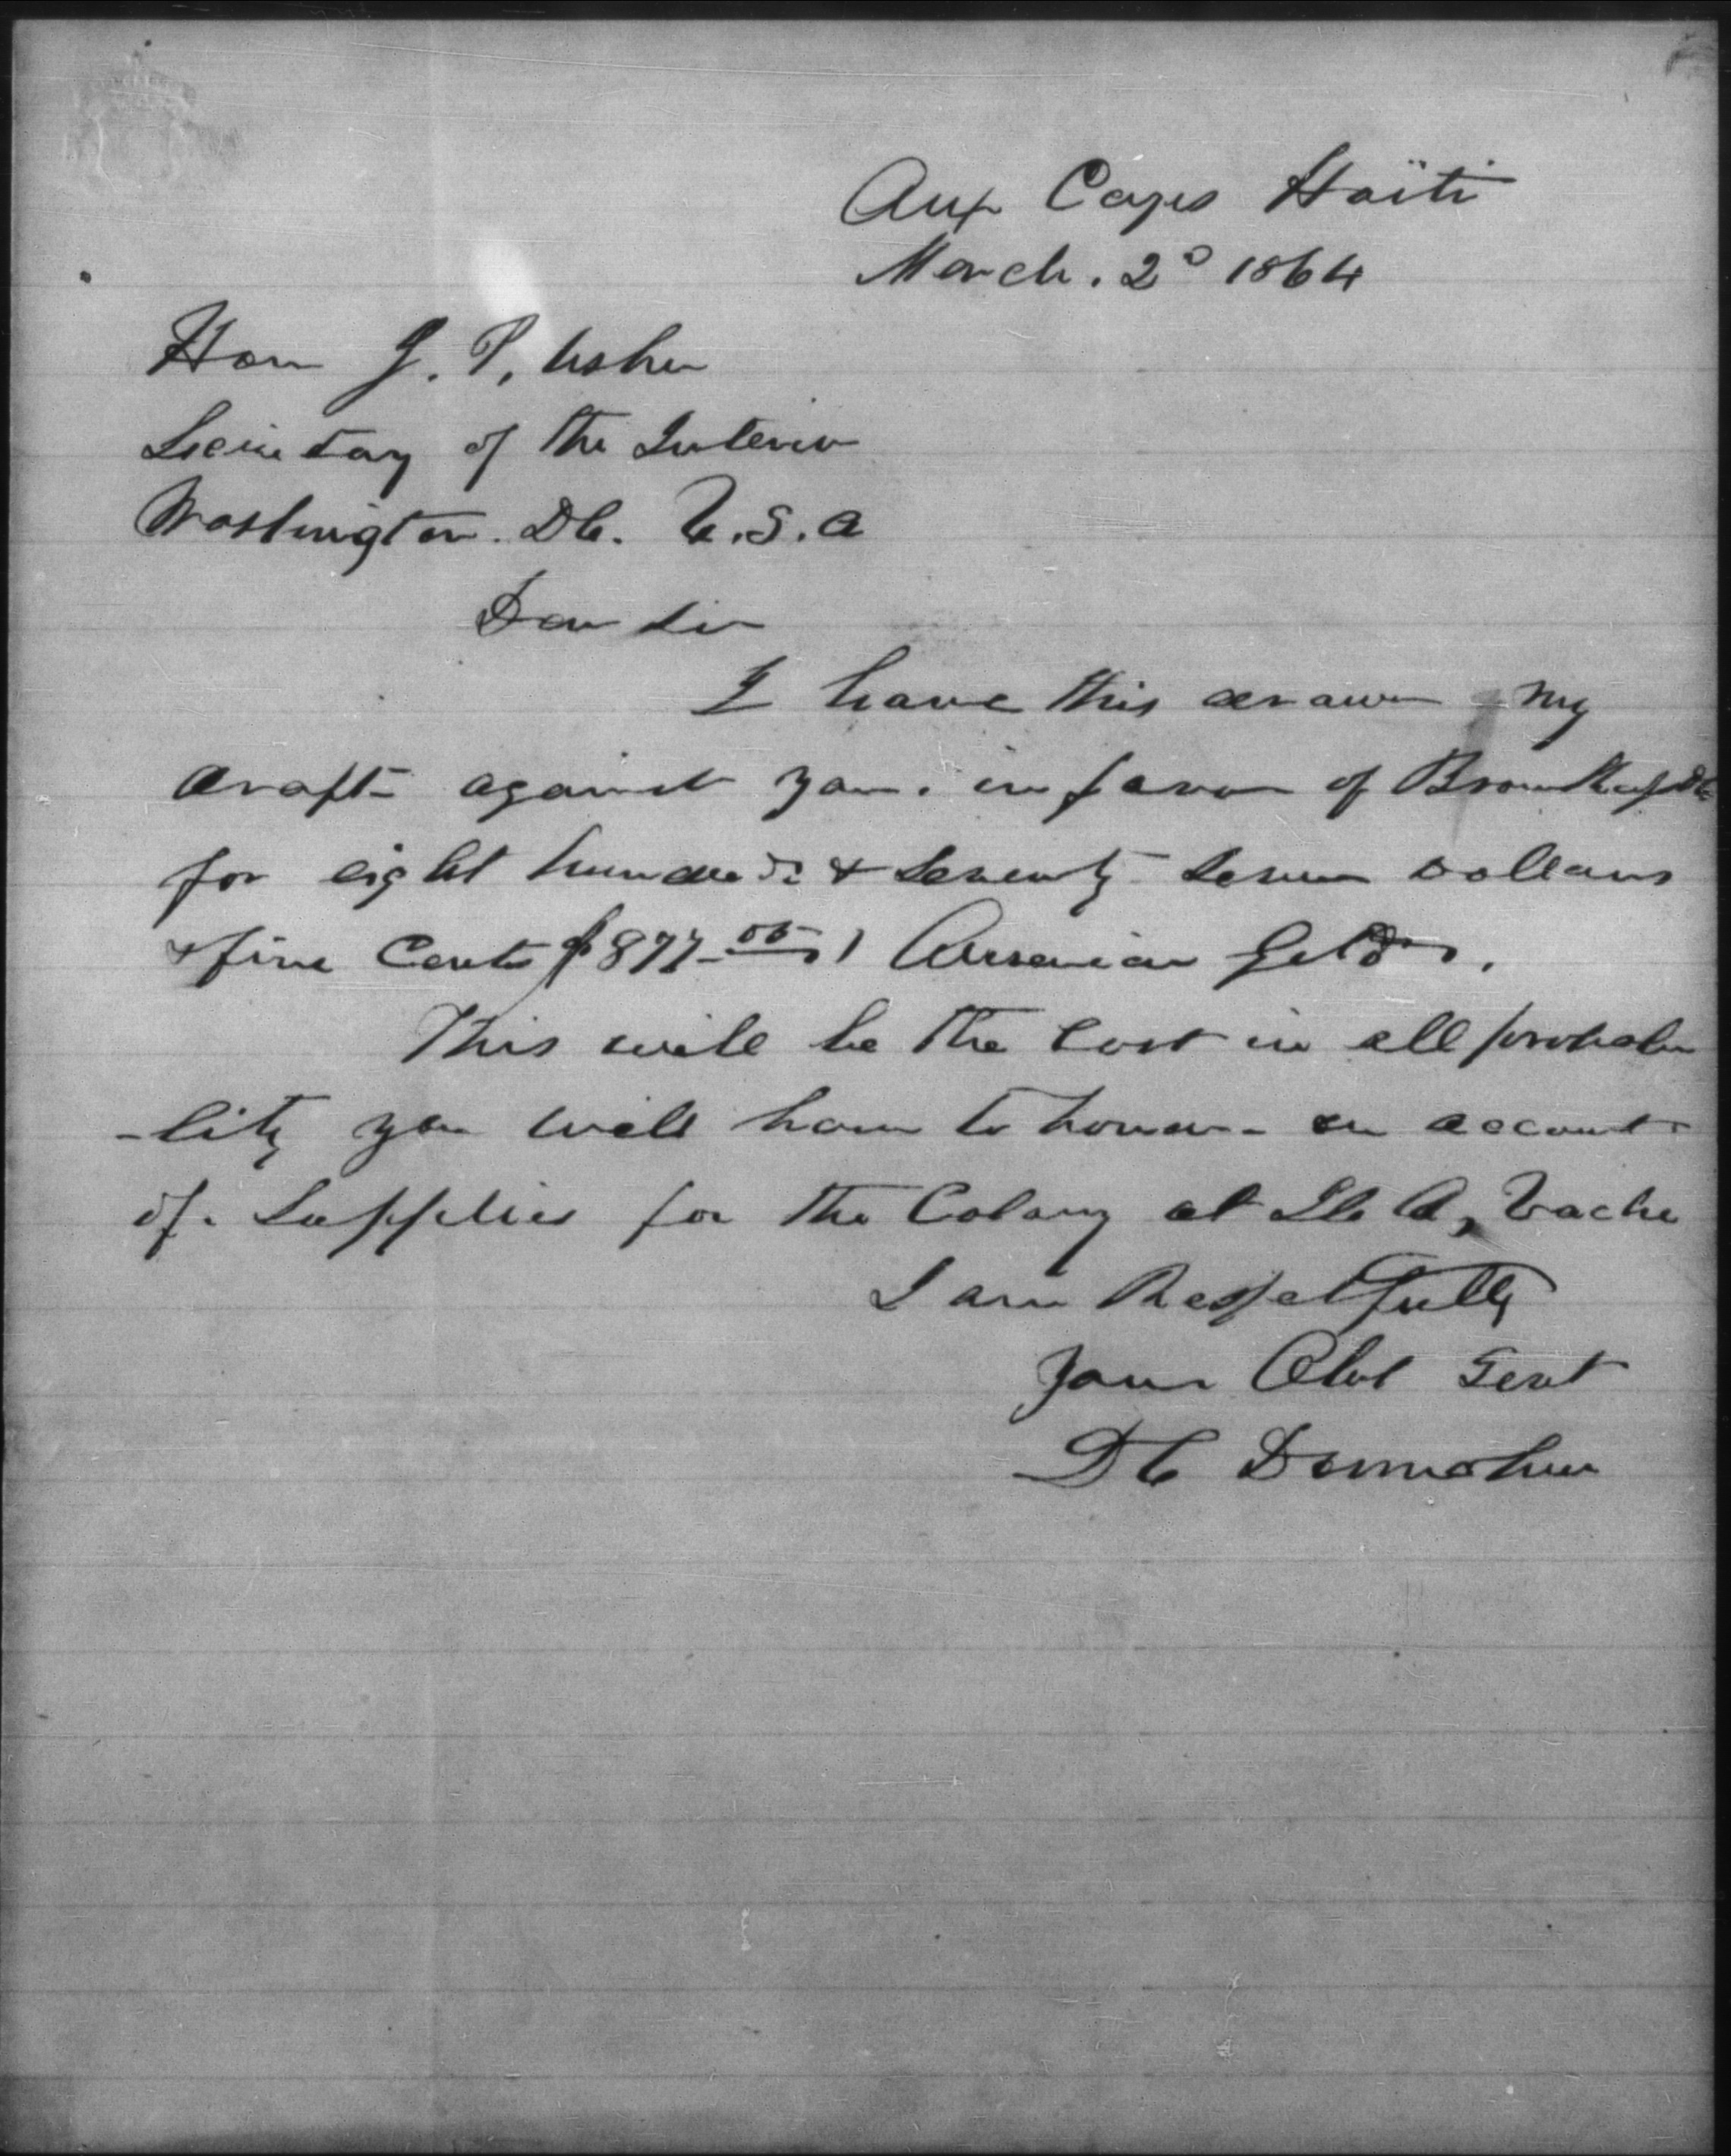 Aux Cayes Haïti
March. 2d 1864
Hon J. P. Usher
Secretary of the Interior
Washington. DC. U.S.A
Dear Sir
I have this drawn my
draft against you. in favor of
for eight hundred & Seventy Seven dollars
& five Cents $877-05 American Gold.
This will be the last in all probabi
-lity you will have to honor on account
of. Supplies for the Colony at Ile A, Vache
I am Respetfully
Your Obt Servt
D C Donnohue